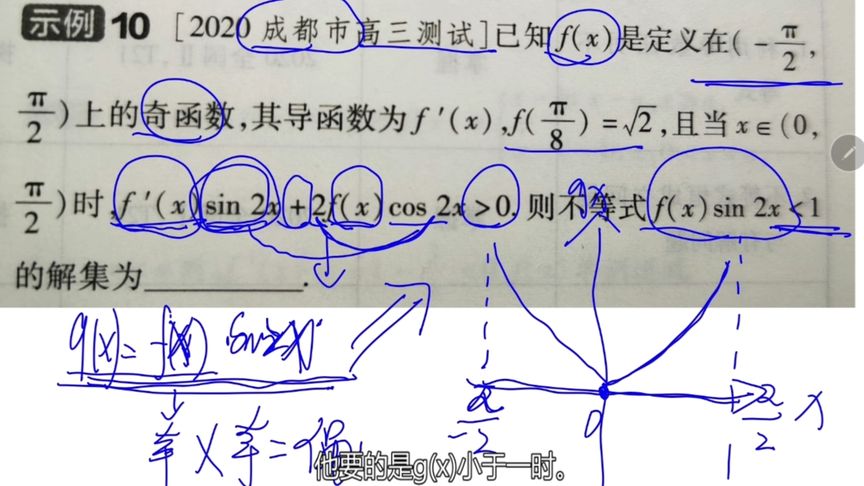 示例 10 [2020 成都市高三测试]已知f(x)是定义在(-π/2,
π/2)上的奇函数,其导函数为f′(x),f(π/8)=√2,且当x∈(0,
π/2)时,f′(x)sin 2x+2f(x)cos 2x>0,则不等式f(x)sin 2x<1
的解集为________.
g(x)=f(x)·sin2x
-π/2 0 π/2 x
奇×奇=偶
他要的是g(x)小于一时。